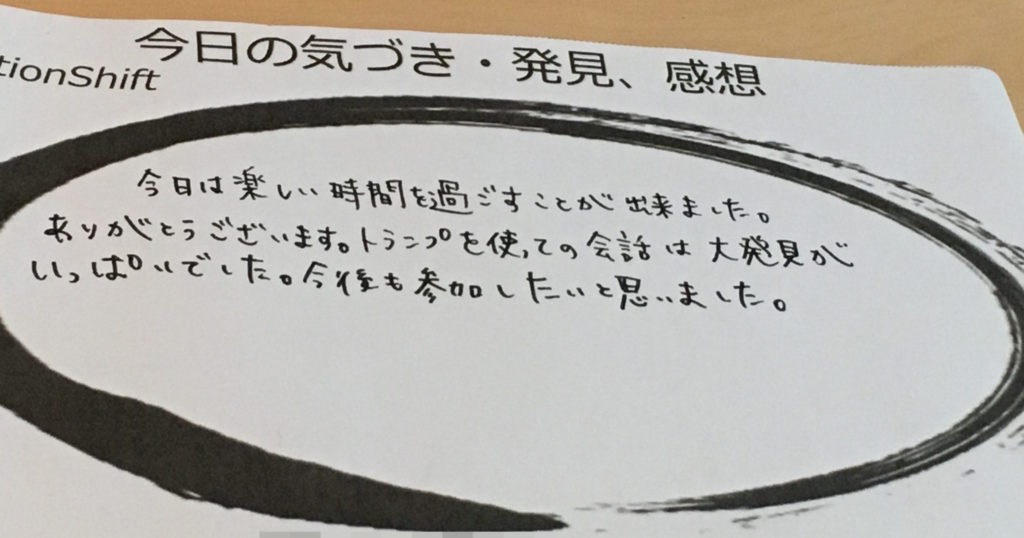 今日の気づき・発見、感想
tionShift
今日は楽しい時間を過ごすことが出来ました。
ありがとうございます。トランプを使っての会話は大発見が
いっぱいでした。今後も参加したいと思いました。